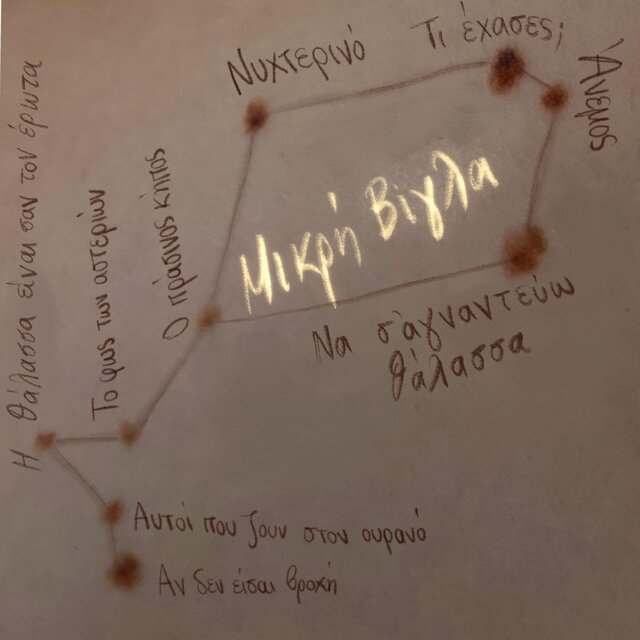 Νυχτερινό
Τι έχασες;
Άνεμος
Μικρή Βίγλα
Να σ'αγναντεύω
θάλασσα
Ο πράσινος κήπος
Το φως των αστεριών
Η θάλασσα είναι σαν τον έρωτα
Αυτοί που ζουν στον ουρανό
Αν δεν είσαι βροχή